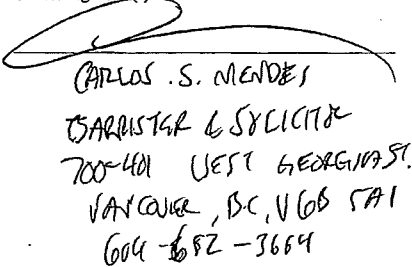 CARLOS .S. MENDES
BARRISTER & SOLICITOR
700-401 WEST GEORGIA ST.
VANCOUVER, B.C, V6B 5A1
604-682-3664